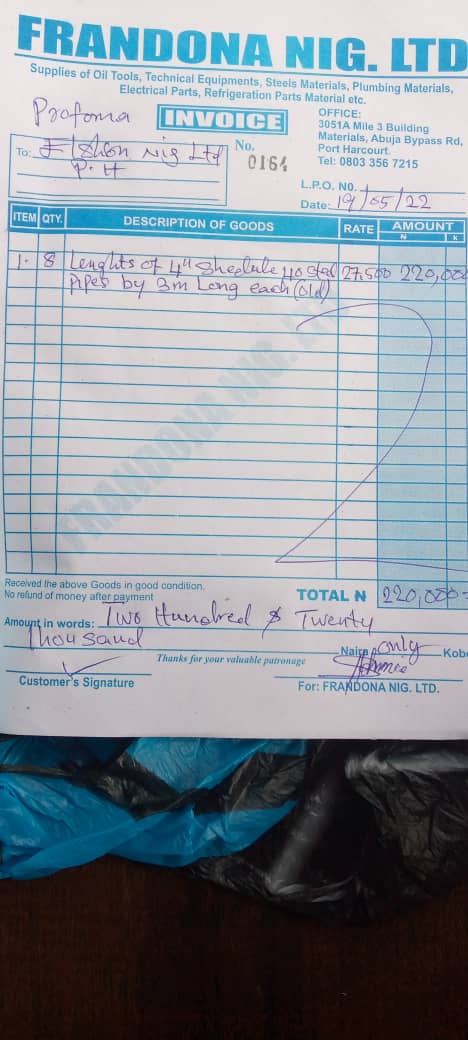 FRANDONA NIG. LTD
Supplies of Oil Tools, Technical Equipments, Steels Materials, Plumbing Materials,
Electrical Parts, Refrigeration Parts Material etc.
Profoma
INVOICE
OFFICE:
3051A Mile 3 Building
Materials, Abuja Bypass Rd,
Port Harcourt.
Tel: 0803 356 7215
To: Nig Ltd
P.H
No.
0164
L.P.O. NO.
Date: 19/05/22
ITEM QTY. DESCRIPTION OF GOODS RATE AMOUNT
N K
1. 8 Lenghts of 4" Shedule 40 27,500 220,000
pipes by 3m Long each (old)
FRANDONA NIG. LTD
Received the above Goods in good condition.
No refund of money after payment
TOTAL N 220,000=
Amount in words: Two Hundred & Twenty
Thousand Naira only Kobo
Thanks for your valuable patronage
Customer's Signature
For: FRANDONA NIG. LTD.